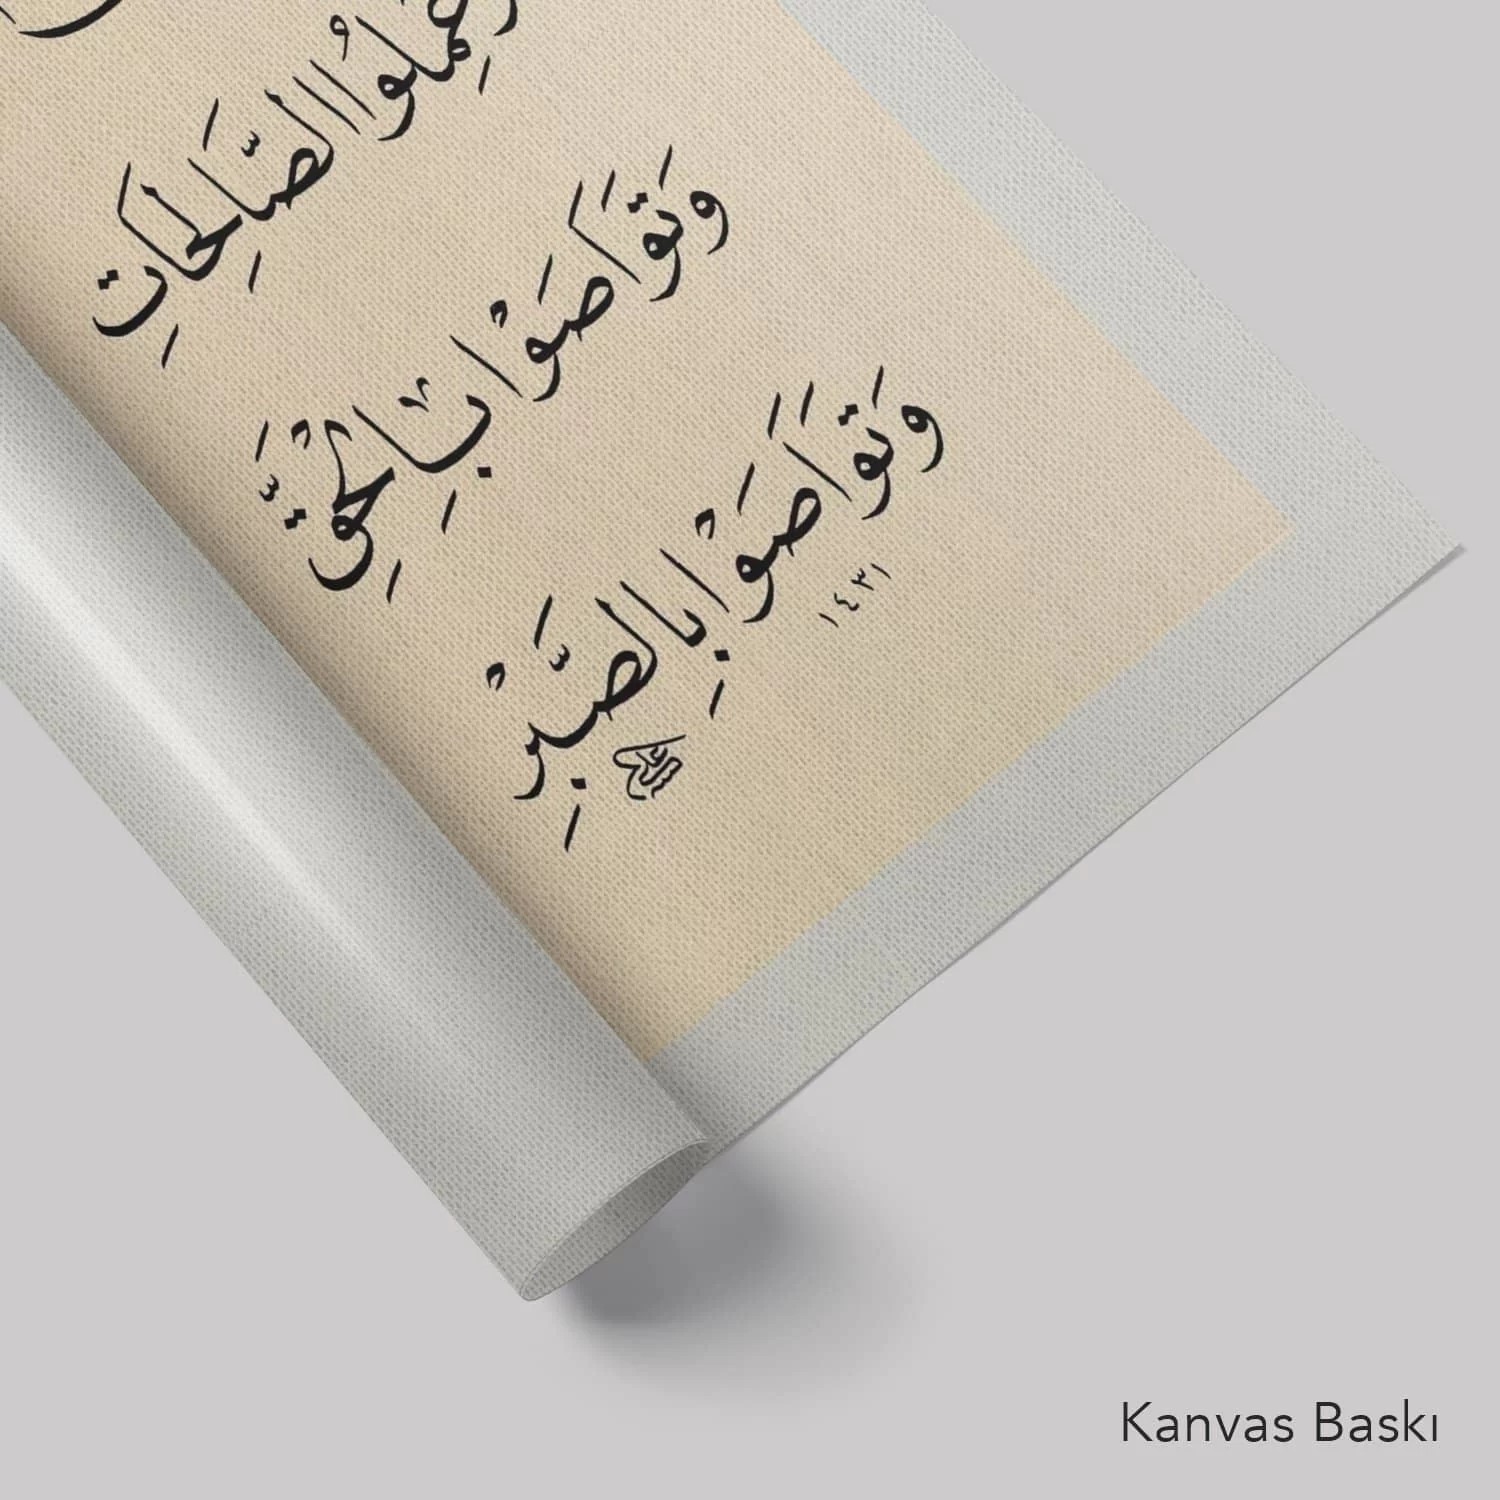 وَعَمِلُوا الصَّالِحَاتِ
وَتَوَاصَوْا بِالْحَقِّ
وَتَوَاصَوْا بِالصَّبْرِ
١٤٣١
Kanvas Baskı